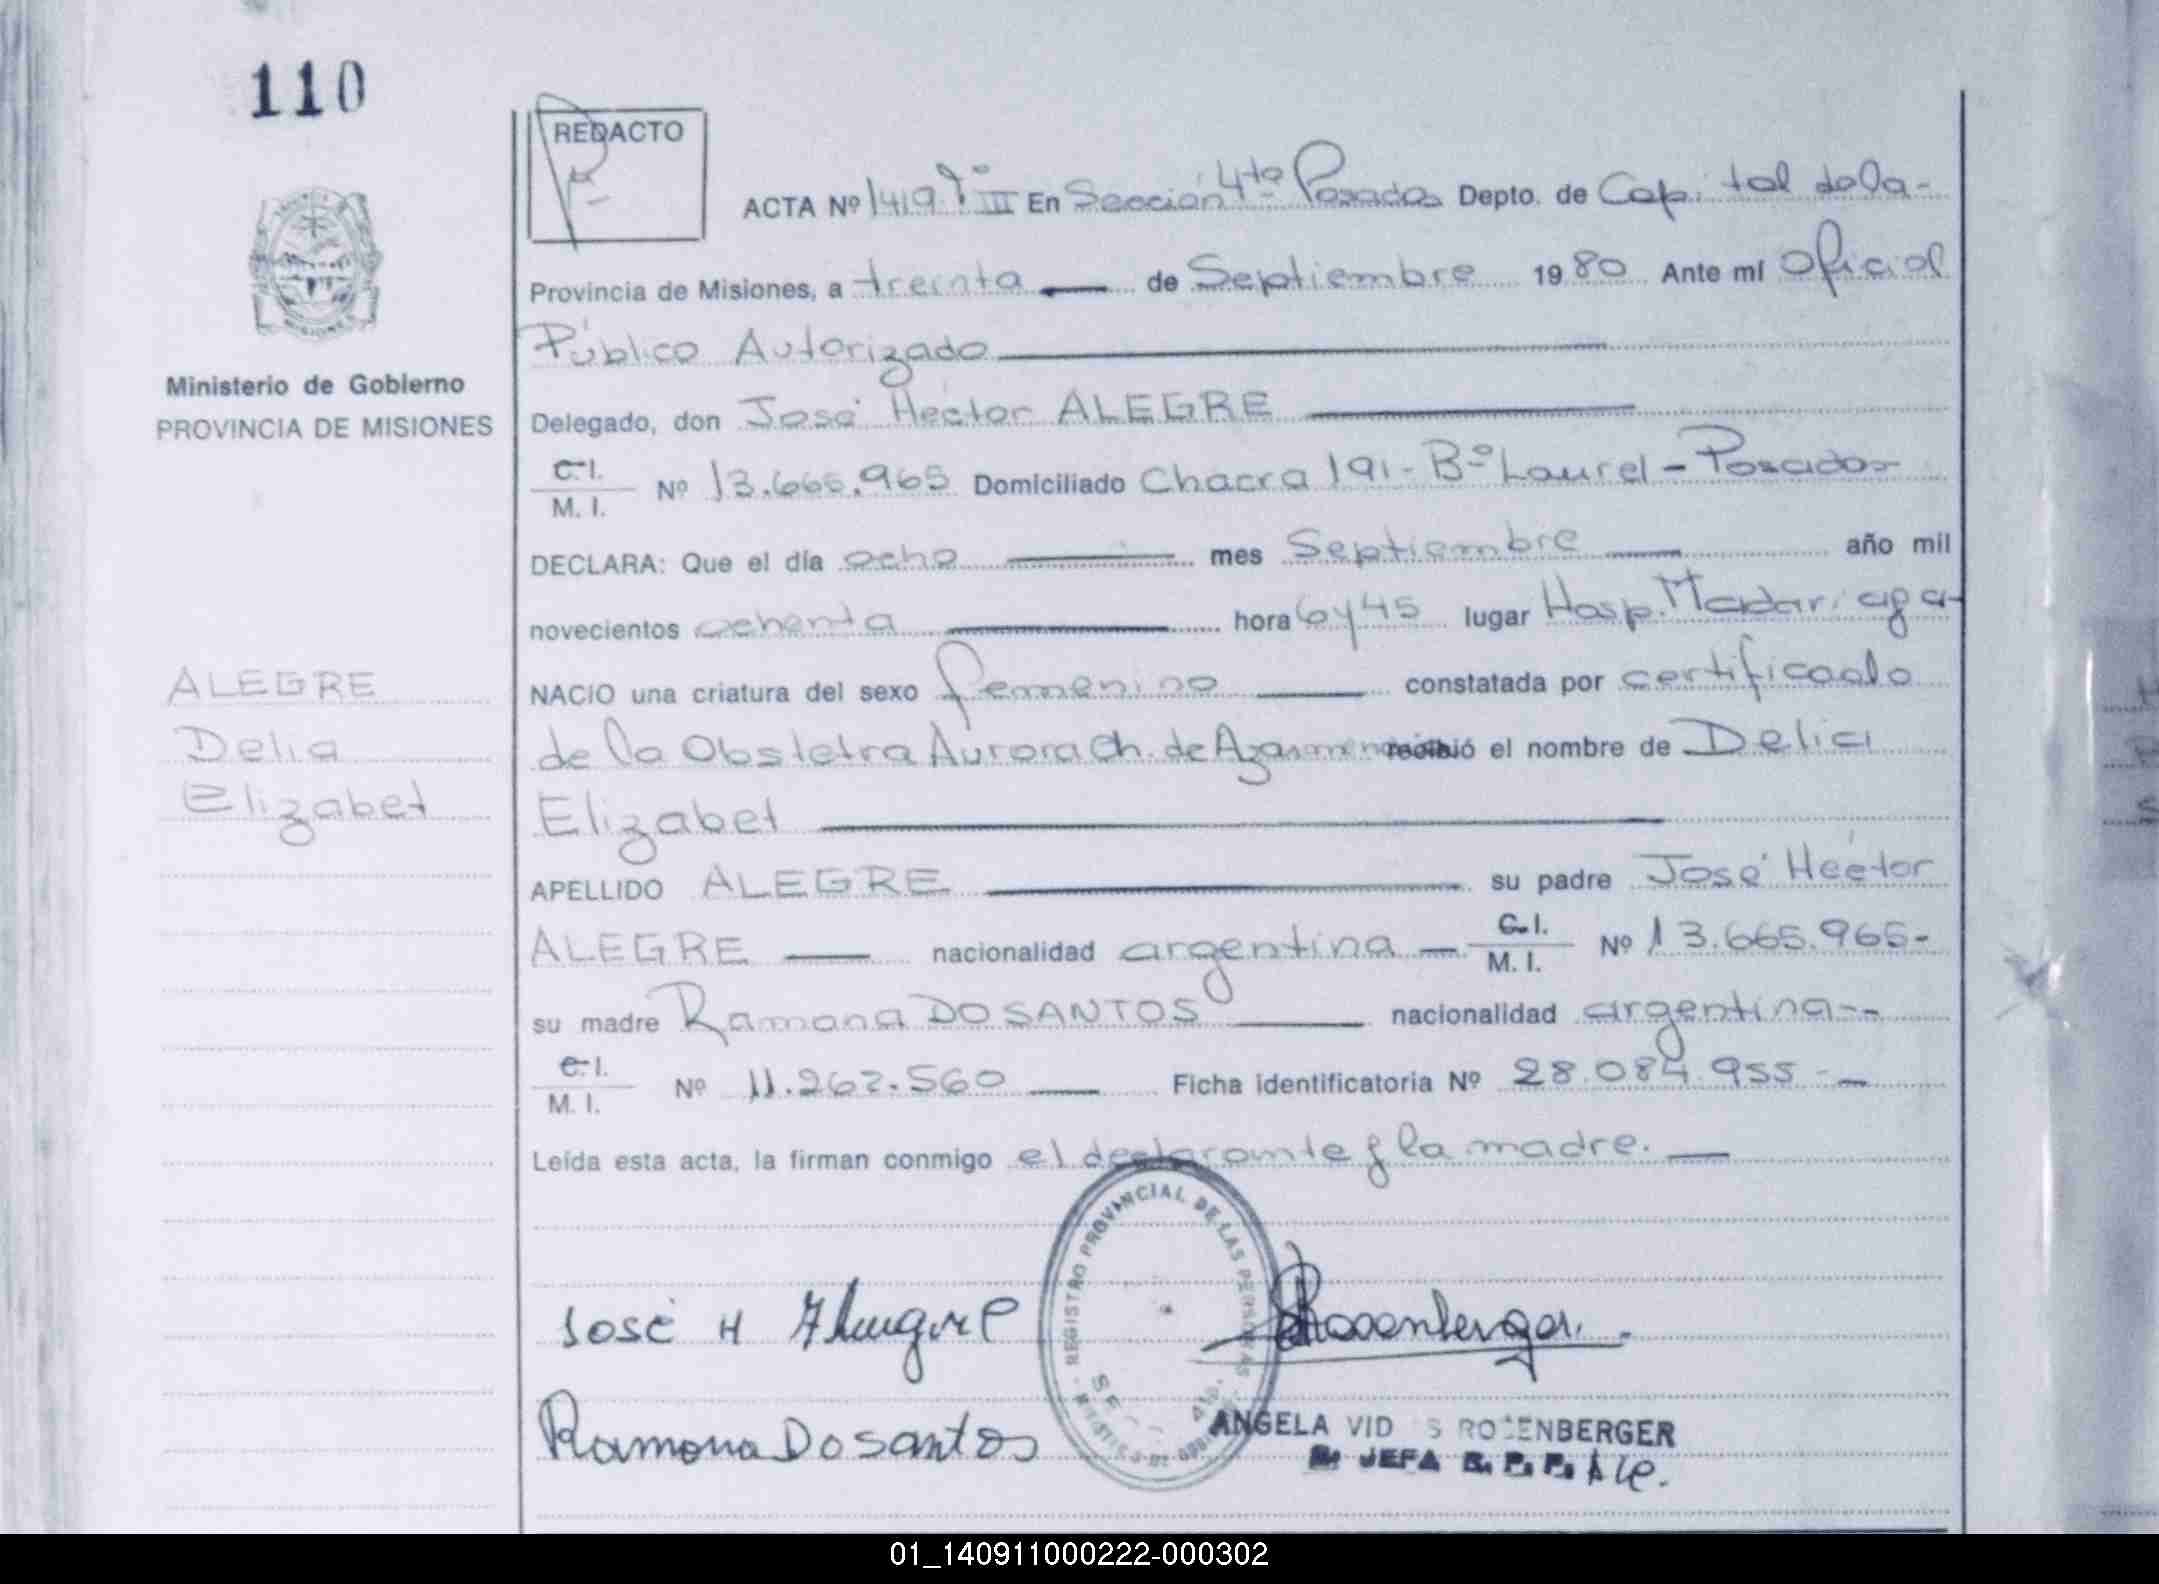 110
REDACTO
ACTA Nº 1419 Tº III En Sección 4ta Posadas Depto. de Capital de la-
Provincia de Misiones, a treinta de Septiembre 1980 Ante mí Oficial
Público Autorizado
Ministerio de Gobierno
PROVINCIA DE MISIONES
Delegado, don José Héctor ALEGRE
C.I.
M. I. Nº 13.665.965 Domiciliado Chacra 191- Bº Laurel - Posadas
DECLARA: Que el día ocho mes Septiembre año mil
novecientos ochenta hora 6 y 45 lugar Hosp. Madariaga-
ALEGRE
Delia
Elizabet
NACIO una criatura del sexo femenino constatada por certificado
de la Obstetra Aurora Ch. de recibió el nombre de Delia
Elizabet
APELLIDO ALEGRE su padre José Héctor
ALEGRE nacionalidad argentina - C.I.
M. I. Nº 13.665.965-
su madre Ramona DO SANTOS nacionalidad argentina--
C.I.
M. I. Nº 11.262.560 Ficha identificatoria Nº 28.084.955--
Leída esta acta, la firman conmigo el declarante y la madre.
REGISTRO PROVINCIAL DE LAS PERSONAS
José H
Rosenberger
Ramona Do santos
ANGELA VID S ROSENBERGER
JEFA R. P. P.
01_140911000222-000302